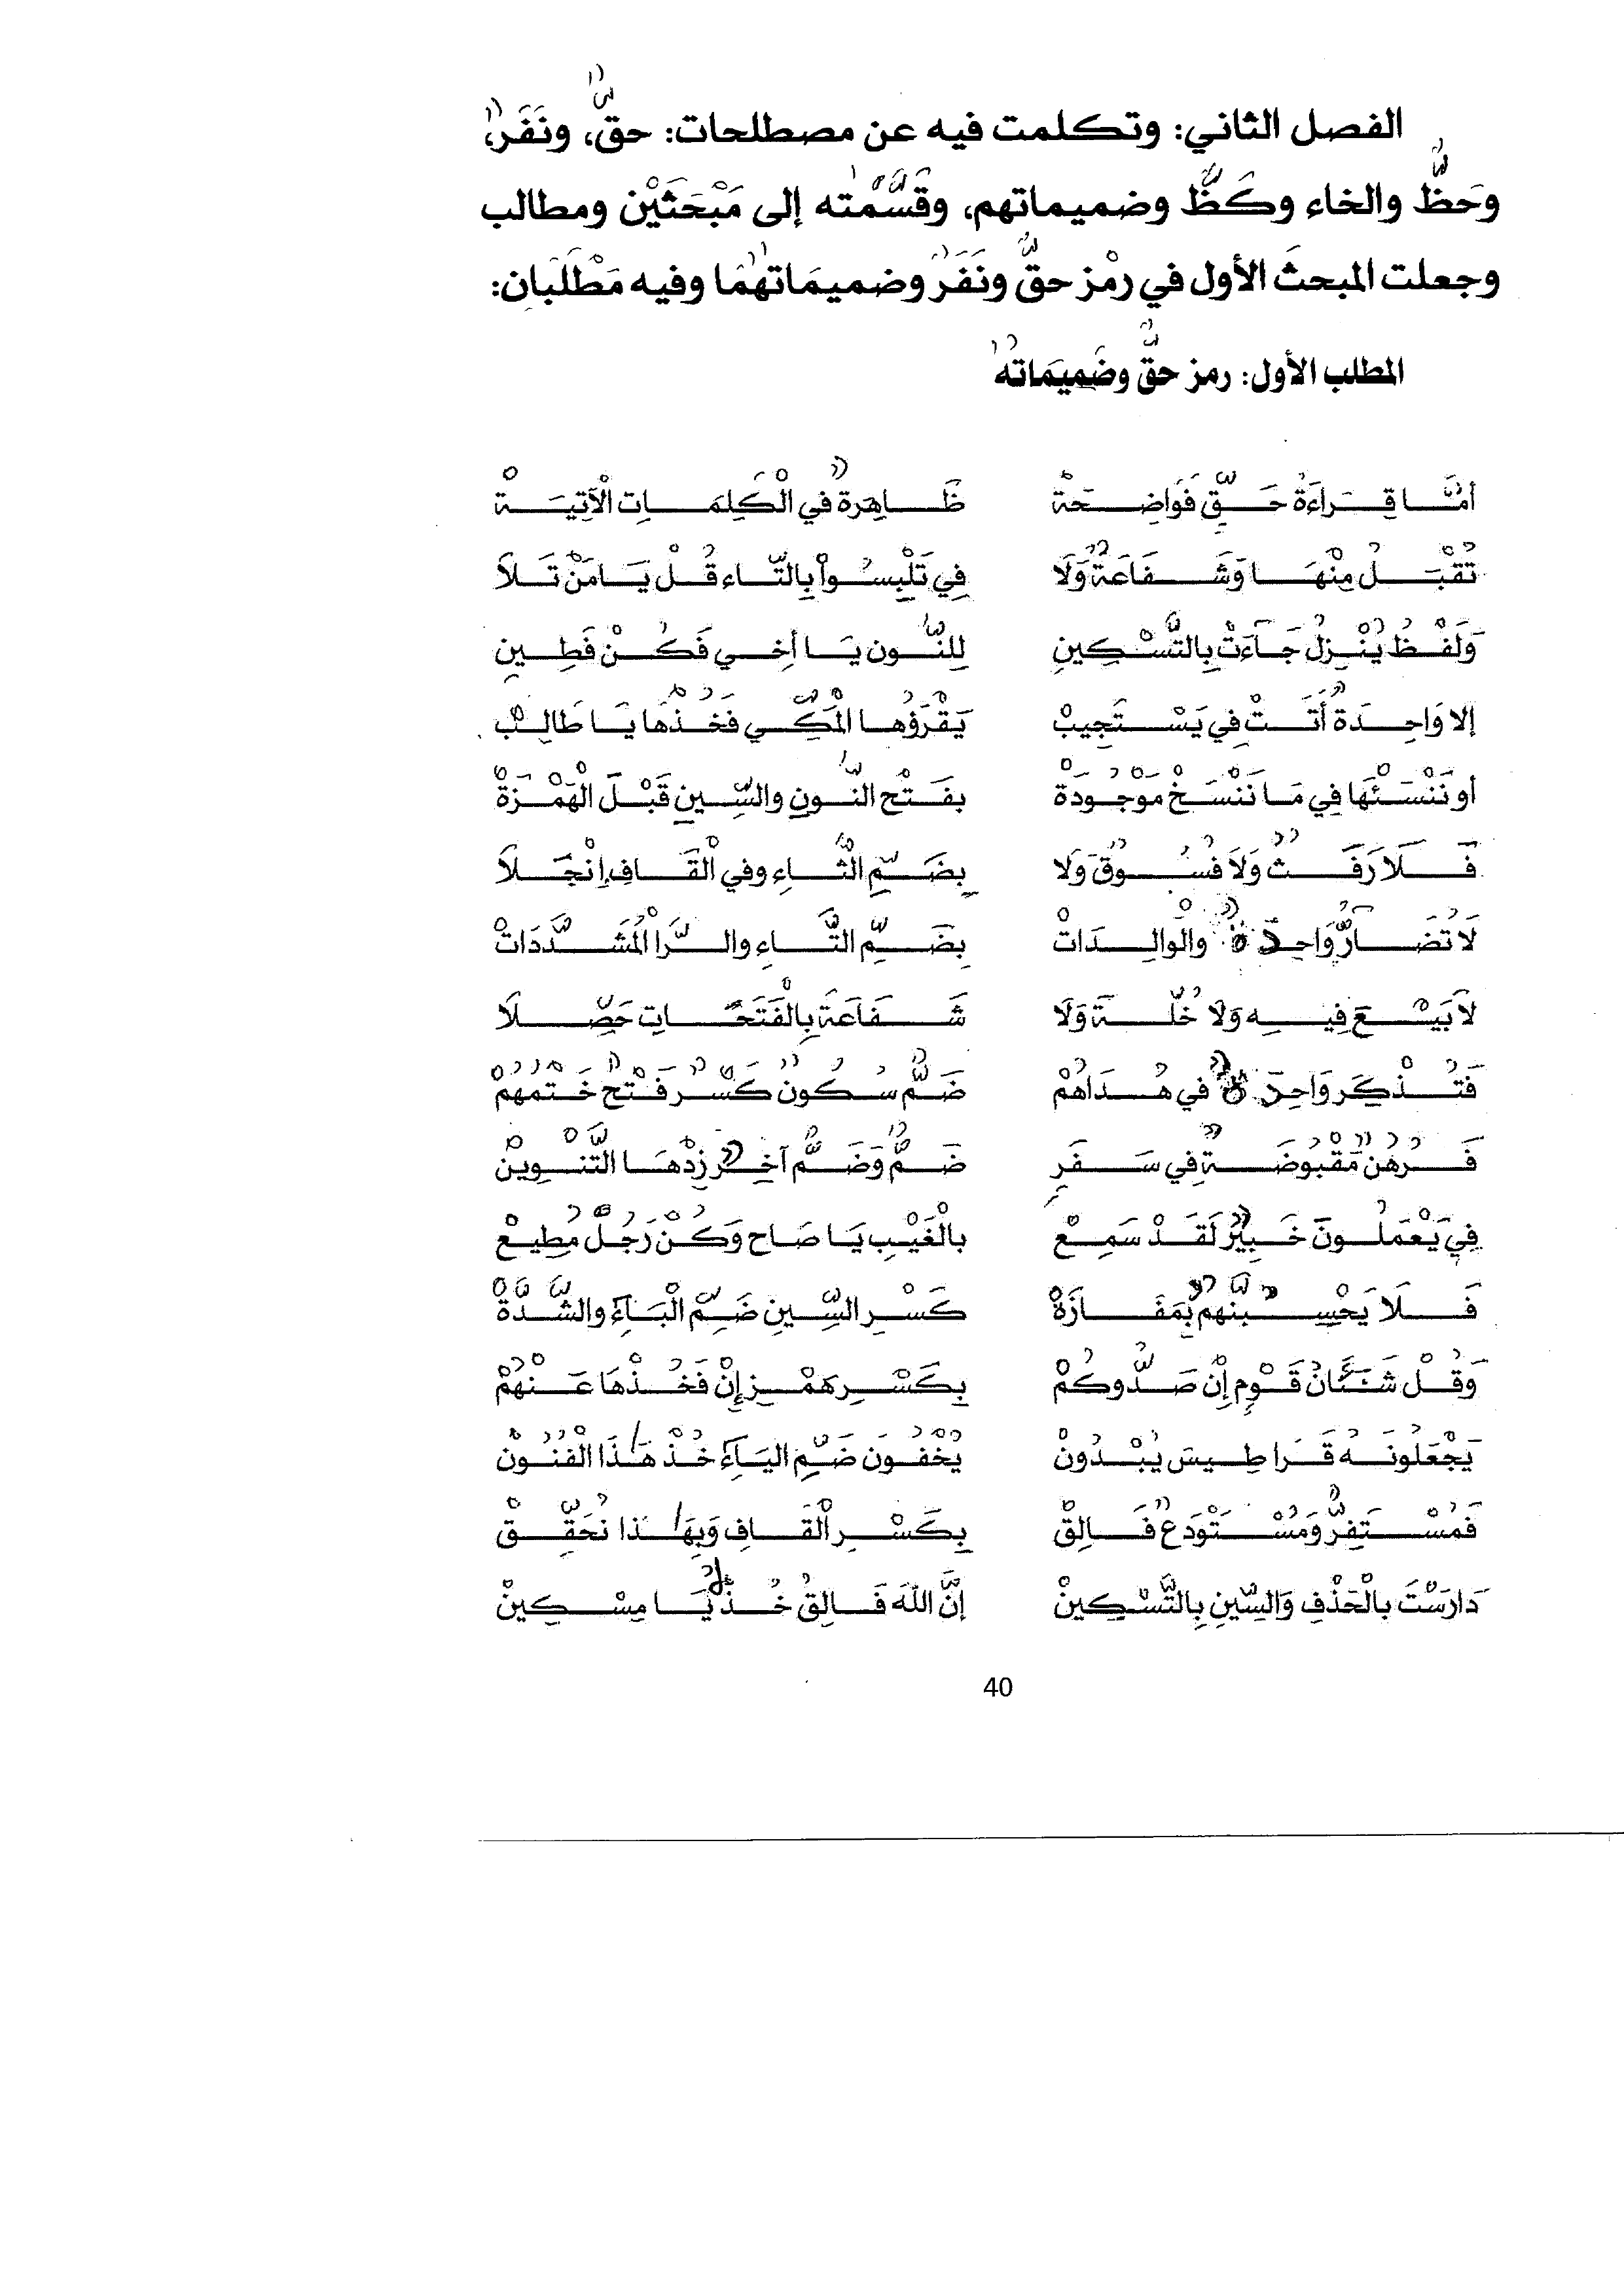 الفصل الثاني: وتكلمت فيه عن مصطلحات: حقٌّ، ونَفَرٌ،
وحَظٌّ والخاء وكَظٌّ وضميماتهم، وقَسَّمْته إلى مَبْحَثَيْن ومطالب
وجعلت المبحثَ الأول في رمْز حقٌّ ونَفَرٌ وضميمَاتهُمَا وفيه مَطْلَبَان:
المطلب الأول: رمز حقٌّ وضَميمَاتهُ
أمَّا قِرَاءَةُ حَقٍّ فَوَاضِحَةْ ظَاهِرةٌ في الْكَلِمَاتِ الْآتِيَةْ
تُقْبَلُ مِنْهَا وَشَفَاعَةٌ وَلَا فِي تَلْبِسُواْ بِالتَّاء قُلْ يَا مَنْ تَلاَ
وَلَفْظُ يُنْزِلُ جَاءَتْ بِالتَّسْكِينِ لِلنُّون يَا أخِي فَكُنْ فَطِينِ
إلا وَاحِدَةٌ أَتَتْ فِي يَسْتَجِيبْ يَقْرَؤُها الْمَكِّي فَخُذْهَا يَا طَالِبْ
أو نَنْسَئْهَا فِي مَا نَنْسَخْ مَوْجُودَةْ بفَتْح النُّونِ والسِّينِ قَبْلَ الْهَمْزَةْ
فَلَا رَفَثٌ وَلاَ فُسُوقٌ وَلا بِضَمِّ الثَّاءِ وفي الْقَافِ إنْجَلاَ
لَا تُضَارُّ وَاحِدٌ والْوالِدَاتْ بِضَمِّ التَّاءِ والرَّا الْمُشَدَّدَاتْ
لاَ بَيْعَ فِيهِ وَلاَ خُلَّةَ وَلَا شَفَاعَةَ بِالْفَتَحَاتِ حَصِّلَا
فَتُذْكِرَ وَاحِدٌ في هُدَاهُمْ ضَمٌّ سُكُونٌ كَسْرٌ فَتْحٌ خَتْمُهُمْ
فَرُهُنٌ مَّقْبُوضَةٌ فِي سَفَرِ ضَمٌّ وَضَمٌّ آخِرٌ زِدْهَا التَّنْوِينْ
فِي يَعْمَلُونَ خَبِيرٌ لَقَدْ سَمِعْ بالْغَيْبِ يَا صَاح وَكُنْ رَجُلٌ مُطِيعْ
فَلَا يَحْسِبُنَّهُم بِمَفَازَةْ كَسْرِ السِّينِ ضَمِّ الْبَاءِ والشَّدَّةْ
وَقُلْ شَنَئَانُ قَوْمٍ إنْ صَدُّوكُمْ بِكَسْرِ هَمْزِ إِنْ فَخُذْهَا عَنْهُمْ
يَجْعَلُونَهُ قَرَاطِيسَ يُبْدُونْ يُخْفُونَ ضَمِّ اليَاءِ خُذْ هَذَا الْفُنُونْ
فَمُسْتَقِرٌّ وَمُسْتَوْدَعٌ فَالِقْ بِكَسْرِ الْقَافِ وَبِهَذا نُحَقِّقْ
دَارَسْتَ بالْحَذْفِ وَالسِّينِ بِالتَّسْكِينْ إنَّ اللهَ فَالِقُ خُذْ يَا مِسْكِينْ
40